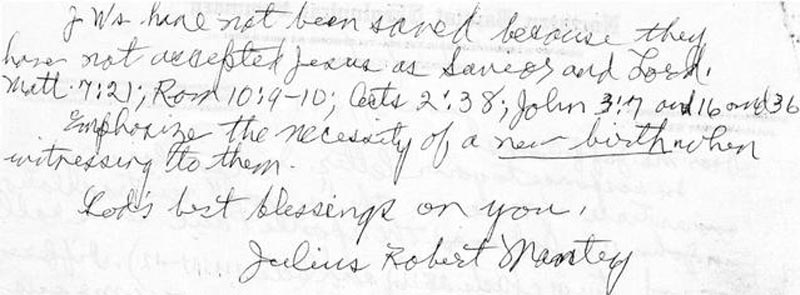 JWs have not been saved because they
have not accepted Jesus as Savior and Lord.
Matt. 7:21; Rom 10:9-10; Acts 2:38; John 3:7 and 16 and 36
Emphasize the necessity of a new birth when
witnessing to them.
God's best blessings on you,
Julius Robert Mantey